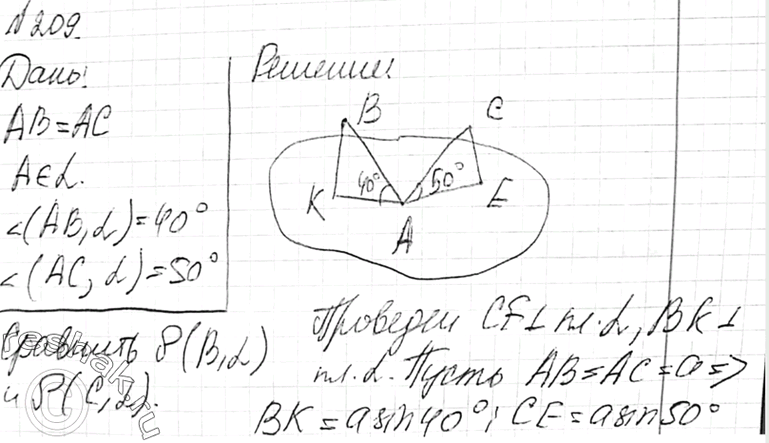 №209.
Дано:
AB=AC
A∈α.
∠(AB,α)=40°
∠(AC, α)=50°
Сравнить ρ(B,α)
и ρ(C,α).
Решение:
B
C
40°
50°
K
E
A
Проведем CE⊥пл.α, BK⊥
пл.α. Пусть AB=AC=a=>
BK=asin40°; CE=asin50°
reshak.ru